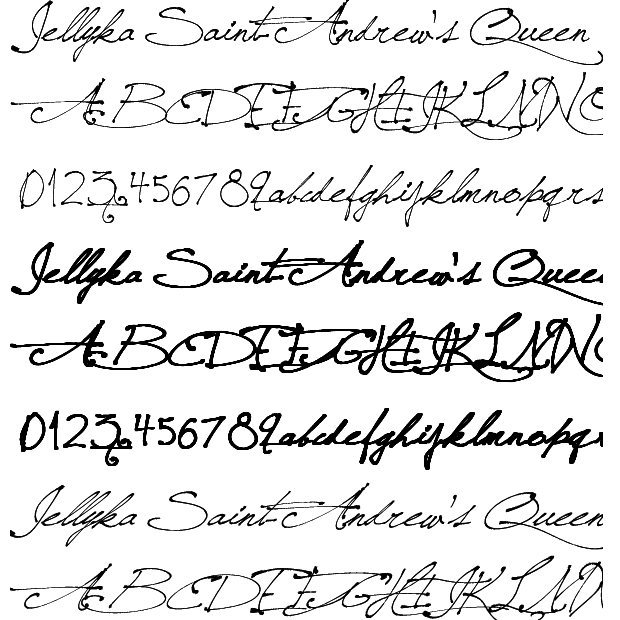 Jellyka Saint-Andrew's Queen
ABCDEFGHIJKLMNO
0123456789abcdefghijklmnopqrs
Jellyka Saint-Andrew's Queen
ABCDEFGHIJKLMNO
0123456789abcdefghijklmnopqr
Jellyka Saint-Andrew's Queen
ABCDEFGHIJKLMN